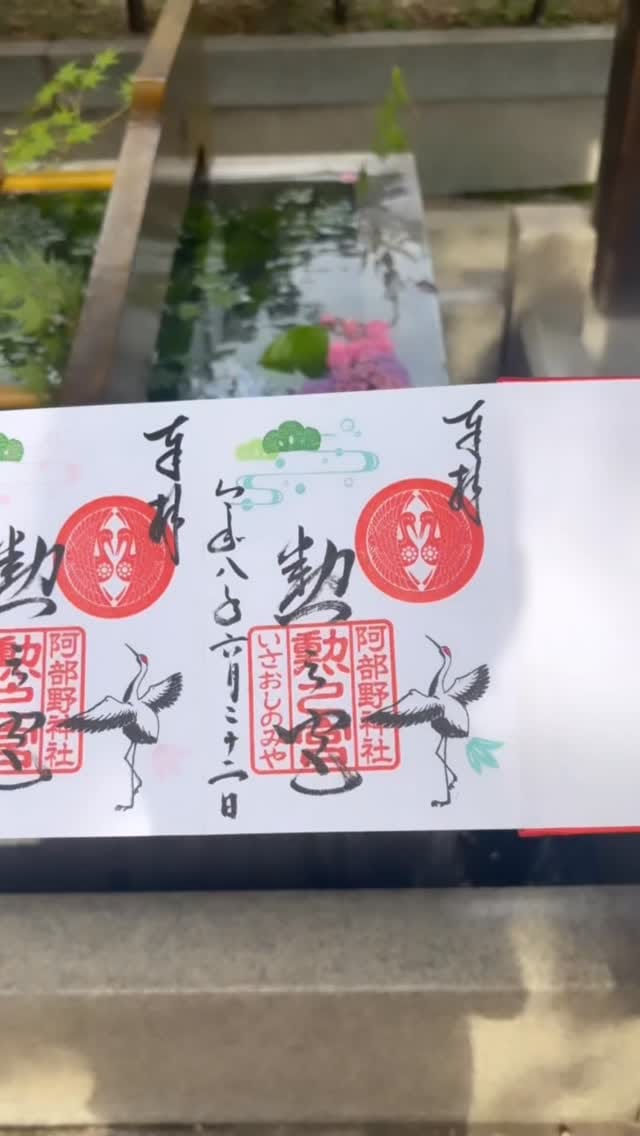 奉拝
勲之宮
阿部野神社
勲之宮
いさおしのみや
令和八年六月二十二日
奉拝
勲
阿部野神社